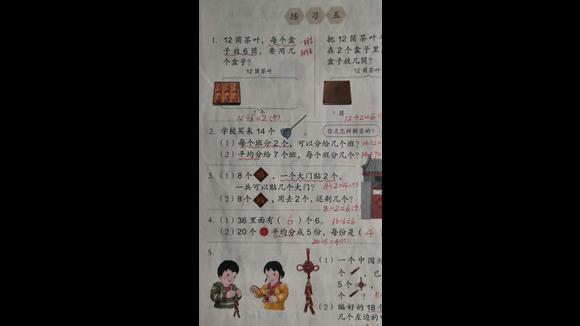 练习五
1. 12筒茶叶，每个盒
子放6筒，要用几
个盒子？
12筒茶叶
?个
12÷6=2(个)
把12筒茶叶
在2个盒子里
盒子放几筒？
12筒茶
?筒
12÷2=6
2. 学校买来14个
你是怎样解答的？
(1) 每个班分2个，可以分给几个班？
(2) 平均分给7个班，每个班分几个？
3. (1) 8个，一个大门贴2个，
一共可以贴几个大门？
8÷2=4(个)
(2) 8个，用去2个，还剩几个？
8-2=6(个)
4. (1) 36里面有(6)个6。
36÷6=6
(2) 20个平均分成5份，每份是(4
20÷5=4(个)
5.
(1) 一个中国
个，已
5个，
个？
(2) 编好的18
几个左边的